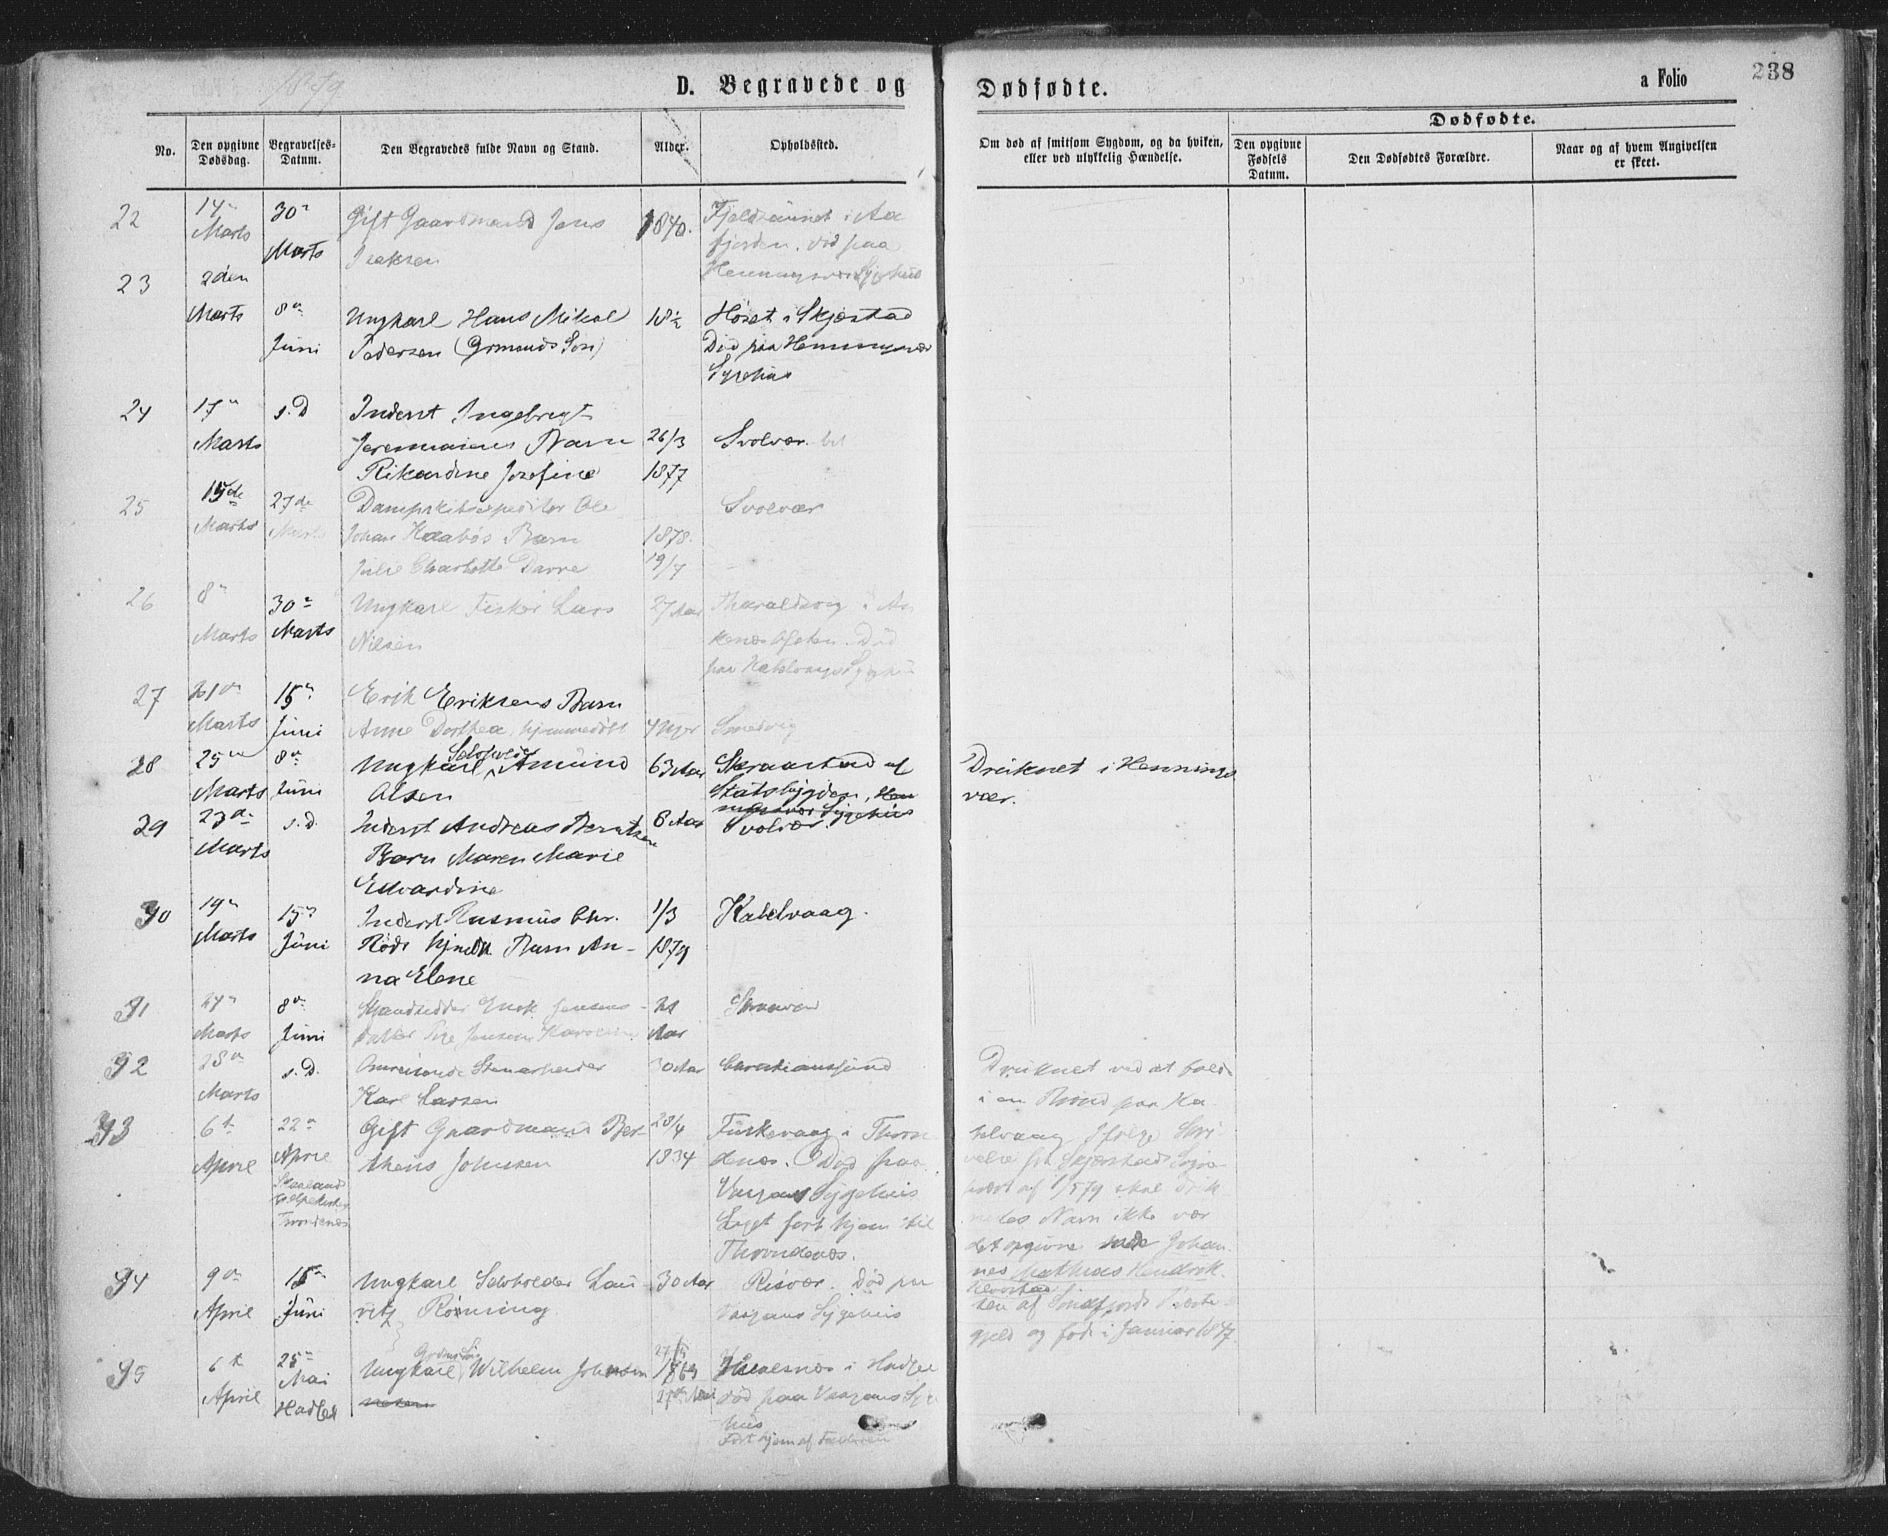 1879
D. Begravede og
Dødfødte.
a Folio
238
No.
Den opgivne
Dødsdag.
Begravelses-
Datum.
Den Begravedes fulde Navn og Stand.
Alder.
Opholdssted.
Om død af smitsom Sygdom, og da hvilken,
eller ved ulykkelig Hændelse.
Dødfødte.
Den opgivne
Fødsels
Datum.
Den Dødfødtes Forældre.
Naar og af hvem Angivelsen
er skeet.
22
14de
Marts
30te
Marts
Gift Gaardmand Jens
1840.
i Aa
fjorden. død paa
Henningsvær Sygehus
23
2den
Marts
8de
Juni
Ungkarl Hans Mikal
Pedersen (Grmands Søn)
18½
Høset i Skjerstad
Død paa Henningsvær
Sygehus
24
17de
Marts
s. D
Inderst Ingebrigt
Jeremiasens Barn
Rikardine Josefine
26/3
1877
Svolvær
25
15de
Marts
27de
Marts
Dampskibsexpeditør Ole
Johan Kaabøs Barn
Julie Charlotte
1878.
19/7
Svolvær
26
8de
Marts
30te
Marts
Ungkarl Fisker Lars
Nilsen
27 Aar
Tharaldsvig i An
kenæs Død
paa Kabelvaags Sygehus
27
21de
Marts
15de
Juni
Erik Eriksens Barn
Anne Dorthea, hjemmedøbt
4 Uger
Smedvig
28
25de
Marts
8de
Juni
Ungkarl Selvholder Amund
Olsen
63 Aar
Skraastad af
Statsbygden, Hen
ningsvær Sygehus
Druknet i Hennings
vær.
29
23de
Marts
s. D.
Inderst Andreas Berntsen
Barn Maren Marie
Edvardine
6 Aar
Svolvær
30
19de
Marts
15de
Juni
Inderst Rasmus Chr.
Røds hjmdbt Barn An-
na Elene
1/3
1879
Kabelvaag.
31
24de
Marts
8de
Juni
Strandsidder Enok Jensens
Datter Pige Karoline
21
Aar
Skraaven
32
28de
Marts
s. D.
Omreisende Stenarbeider
Karl Larsen
30 Aar
Christianssund
Druknet ved at falde
i en Brønd paa Ka
belvaag Ifølge Skri
velse fra Skjerstads Sogne
præst af 1/5 79 skal Druk
nedes Navn ikke vær
det opgivne men Johan
nes Mathias Hendrik
sen af Søndfjords Præste
gjeld og født i Januar 1847
33
6te
April
22de
April
Trondenæs
Gift Gaardmand Ber-
theus Johnsen
28/4
1834
Fuskevaag i Thron
denæs. Død paa
Vaagans Sygehus
Liget ført hjem til
Throndenæs.
34
9de
April
15de
Juni
Ungkarl Selvholder Lau
ritz Rønning
30 Aar
Risvær. Død paa
Vaagans Sygehus
35
6te
April
25de
Mai
Hadsel
Ungkarl, Wilhelm Johnsen
1863
i Hadsel
død paa Vaagans Syge
hus
Ført hjem af Faderen